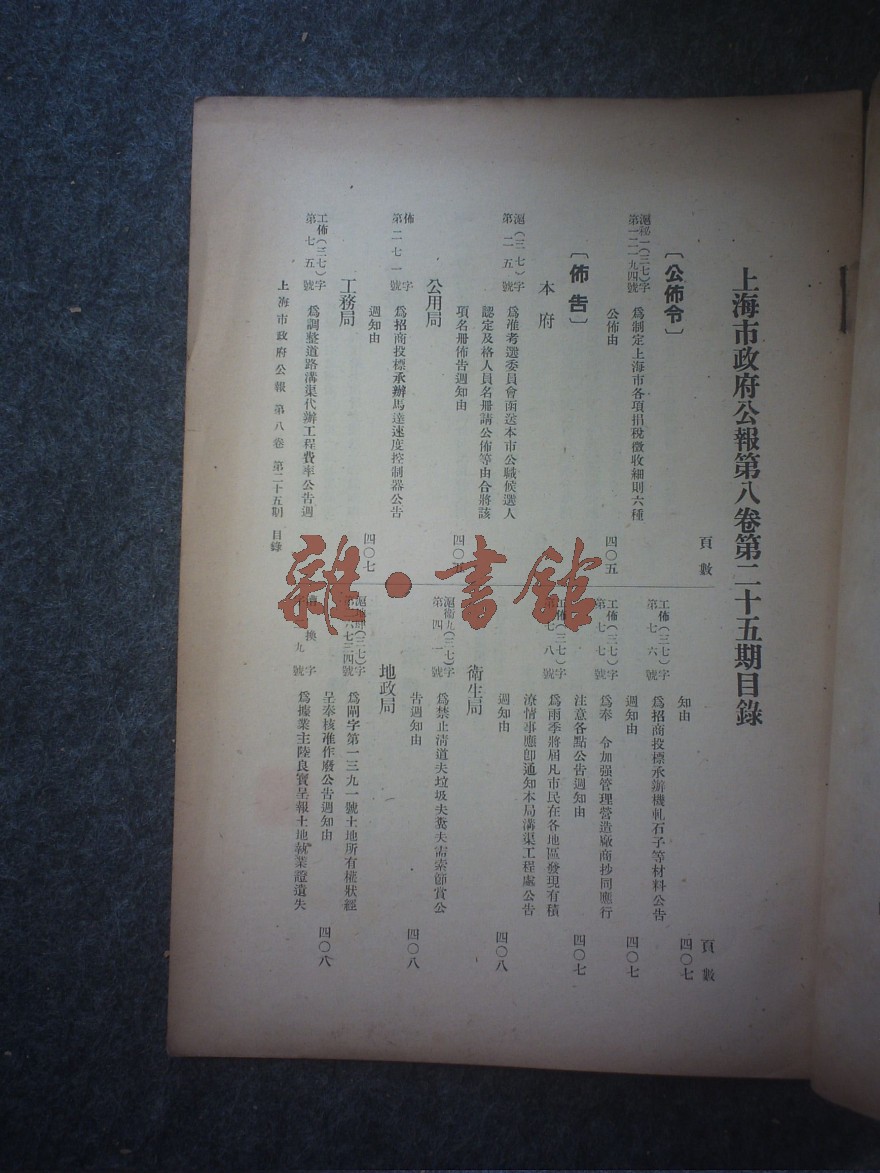 上海市政府公報第八卷第二十五期目錄
頁數
〔公佈令〕
滬秘一(三七)字
第一二一九四號
爲制定上海市各項捐稅徵收細則六種
公佈由
四〇五
〔佈告〕
本府
滬(三七)字
第二五號
爲准考選委員會函送本市公職候選人
認定及格人員名册請公佈等由合將該
項名册佈告週知由
公用局
佈字
第二七一號
爲招商投標承辦馬達速度控制器公告
週知由
四〇七
工務局
工佈(三七)字
第七五號
爲調整道路溝渠代辦工程費率公告週
頁數
知由
四〇七
工佈(三七)字
第七六號
爲招商投標承辦機軋石子等材料公告
週知由
四〇七
工佈(三七)字
第七七號
爲奉 令加强管理營造廠商抄同應行
注意各點公告週知由
四〇七
工佈(三七)字
第七八號
爲雨季將屆凡市民在各地區發現有積
潦情事應卽通知本局溝渠工程處公告
週知由
四〇八
衛生局
滬衛九(三七)字
第四一號
爲禁止清道夫垃圾夫糞夫需索節賞公
告週知由
四〇八
地政局
(三七)字
六七三四號
爲閘字第一三九一號土地所有權狀經
呈奉核准作廢公告週知由
四〇八
換字
九號
爲據業主陸良寶呈報土地執業證遺失
上海市政府公報 第八卷 第二十五期 目錄
雜·書館